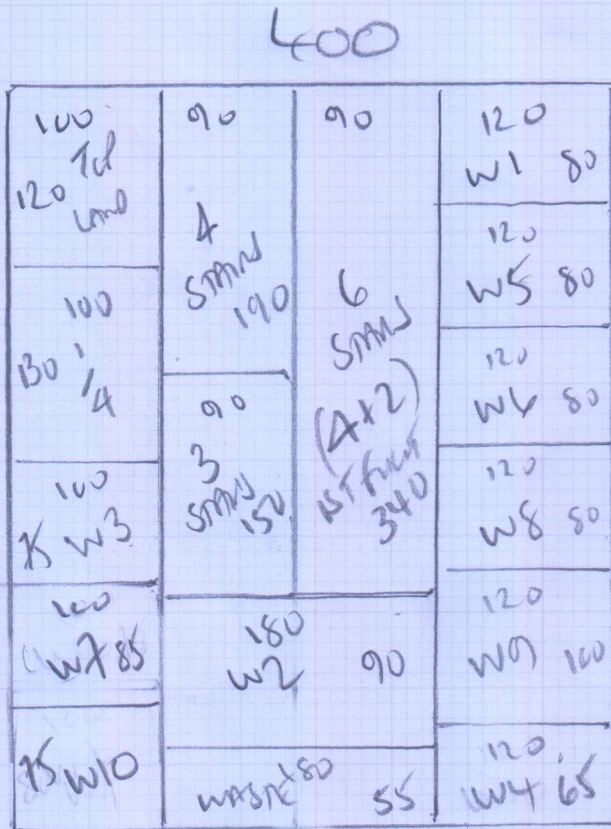 400
100
120 Top
Land
100
130 1/4
100
75 W3
100
W7 85
75 W10
90
4
STAIRS
190
90
3
STAIRS 150
90
6
STAIRS
(4+2)
1ST FLIGHT
340
180
W2 90
WASTE 180 55
120
W1 80
120
W5 80
120
W6 80
120
W8 80
120
W9 100
120
W4 65